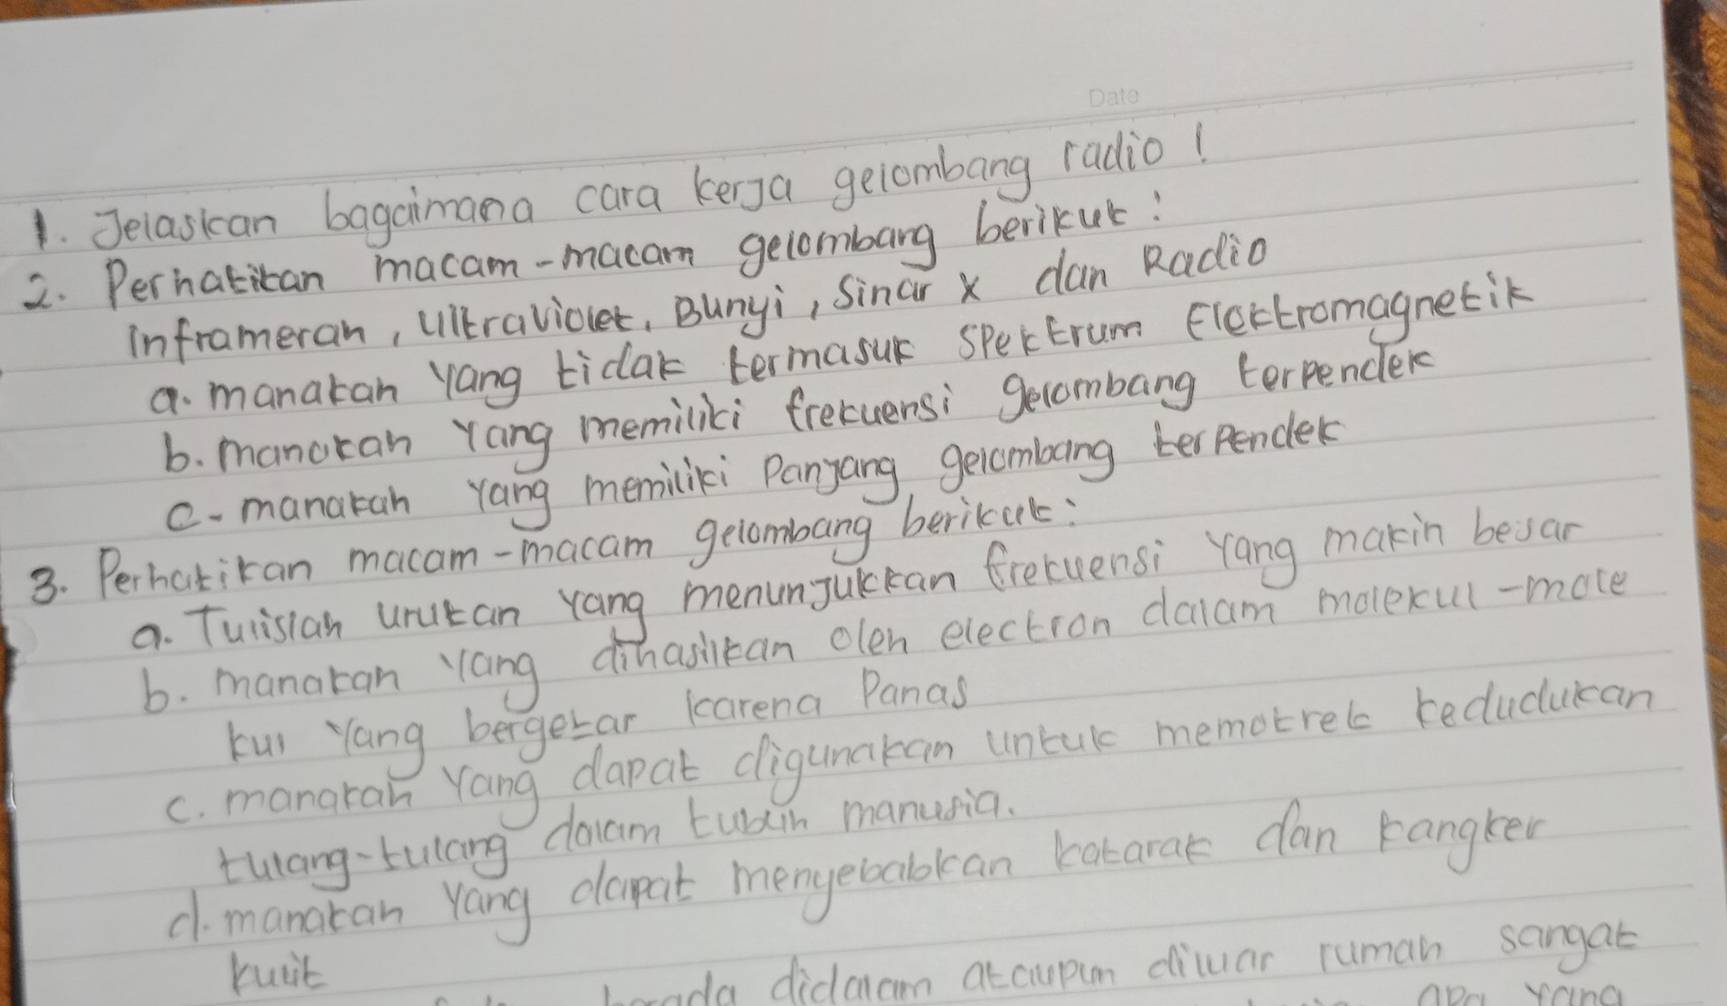 Date
1. Jelaskan bagaimana cara kerja gelombang radio !
2. Perhatikan macam-macam gelombang berikut :
Inframeran, Ultraviolet, Bunyi, Sinar x dan Radio
a. manakah yang tidak termasuk Spektrum Elektromagnetik
b. manakah yang memiliki frekuensi gelombang terpendek
c. manakah yang memiliki Panjang gelombang terpendek
3. Perhatikan macam-macam gelombang berikut :
a. Tulislah urutan yang menunjukkan frekuensi yang makin besar
b. manakah yang dihasilkan oleh electron dalam molekul-mole
kul yang bergetar karena Panas
c. manakah yang dapat digunakan untuk memotret kedudukan
tulang-tulang dalam tubuh manusia.
d. manakah yang dapat menyebabkan katarak dan kangker
kulit
didalam ataupun diluar rumah sangat
apa yang